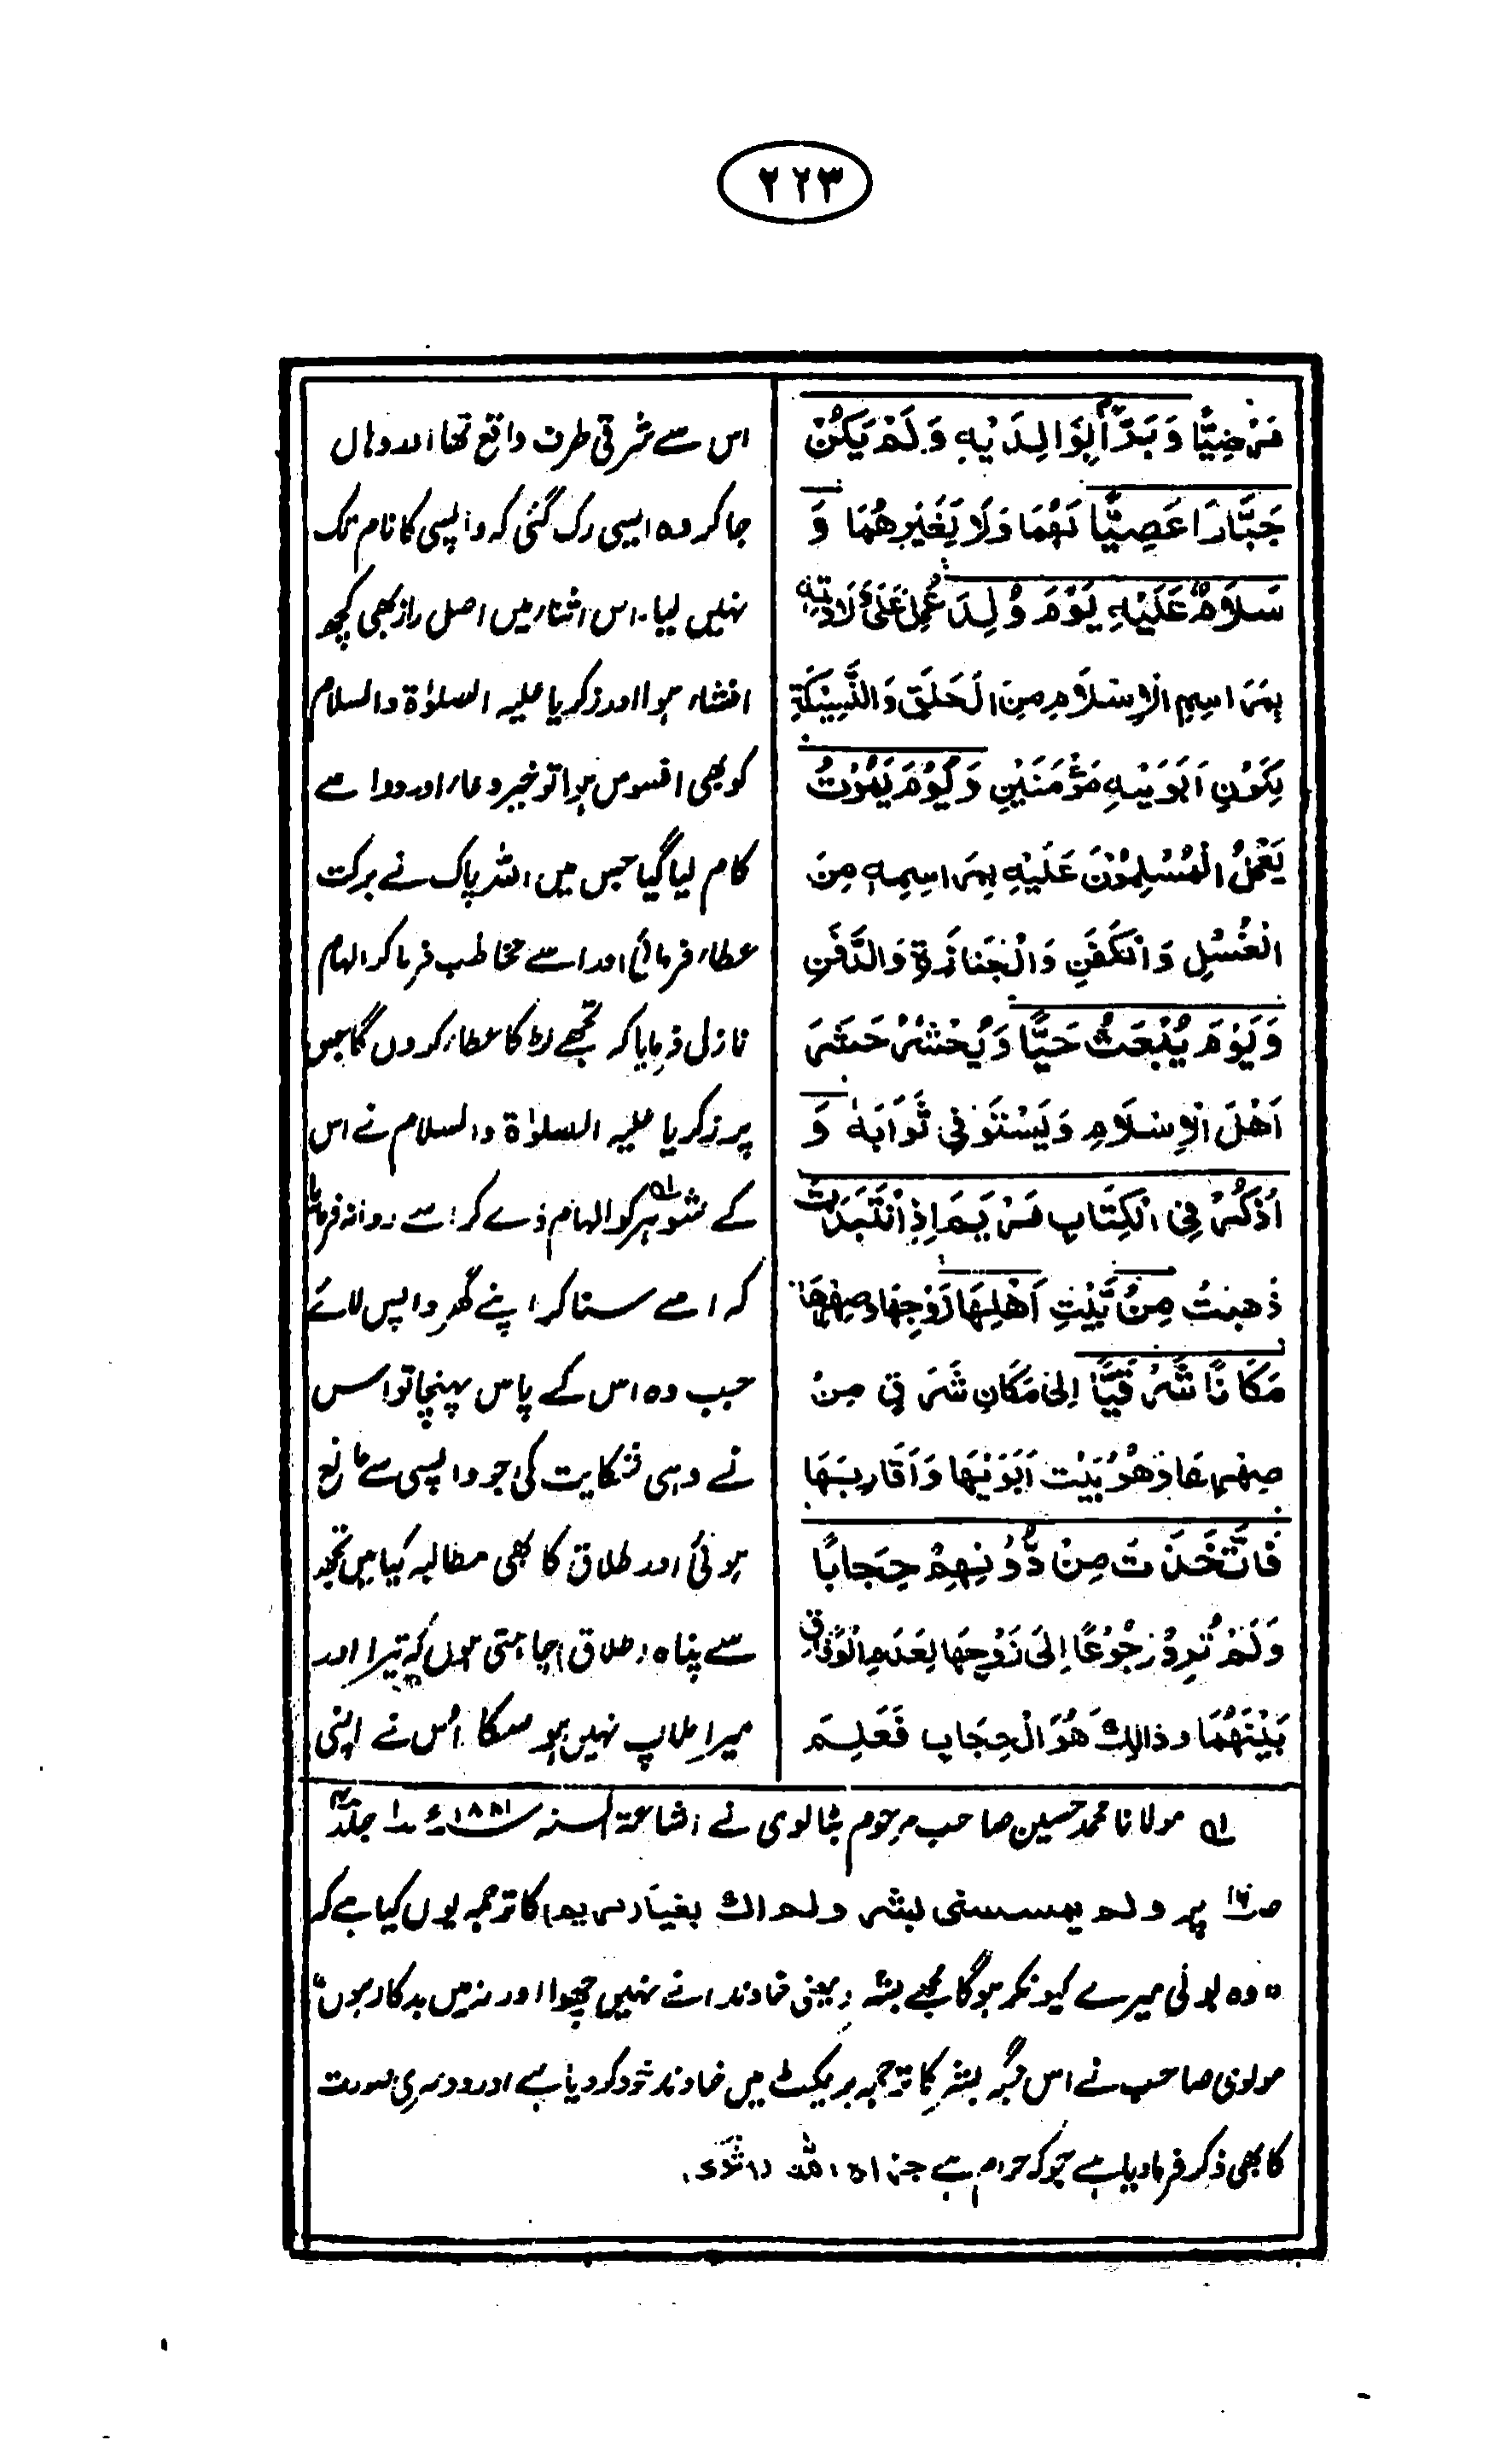 ۲۲۳
مَرْضِيًّا وَ بَرًّا بِوَالِدَيْهِ وَ لَمْ يَكُنْ
جَبَّارًا عَصِيًّا لَهُمَا وَلَا لِغَيْرِهِمَا وَ
سَلَامٌ عَلَيْهِ يَوْمَ وُلِدَ عُمِلَ عَلَى وِلَادَتِهِ
بِمَرَاسِمِ الْاِسْلَامِ مِنَ الْحَلَقِ وَالنَّسِيْكَةِ
بِكَوْنِ اَبَوَيْهِ مُؤْمِنَيْنِ وَ يَوْمَ يَمُوْتُ
يَعْمَلُ الْمُسْلِمُوْنَ عَلَيْهِ بِمَرَاسِمِهٖ مِنَ
الْغُسْلِ وَ الْكَفَنِ وَ الْجَنَازَةِ وَ الدَّفْنِ
وَ يَوْمَ يُبْعَثُ حَيًّا وَ يُحْشَرُ حَشَرَ
اَهْلِ الْاِسْلَامِ وَ يَسْتَوْفِيْ ثَوَابَهٗ وَ
اذْكُرْ فِي الْكِتَابِ مَرْيَمَ اِذِ انْتَبَذَتْ
ذَهَبَتْ مِنْ بَيْتِ اَهْلِهَا زَوْجِهَا وَصِهْرِهَا
مَكَانًا شَرْقِيًّا اِلٰى مَكَانٍ شَرْقِيٍّ مِنْ
صِهْرِهَا وَ هُوَ بَيْتُ اَبَوَيْهَا وَ اَقَارِبِهَا
فَاتَّخَذَتْ مِنْ دُوْنِهِمْ حِجَابًا
وَ لَمْ تُرِدْ رُجُوْعًا اِلٰى زَوْجِهَا لِعَدَمِ الْوِفَاقِ
بَيْنَهُمَا وَ ذَالِكَ هُوَ الْحِجَابُ فَعَلِمَ
اس سے شرقی طرف واقع تھا اور وہاں
جا کر وہ ایسی رک گئی کہ واپسی کا نام تک
نہیں لیا۔ اس اثنار میں اصل راز بھی کچھ
افشاء ہوا اور زکریا علیہ الصلوٰۃ والسلام
کو بھی افسوس ہوا تو خیر دعاء اور دوا سے
کام لیا گیا جس میں اللہ پاک نے برکت
عطاء فرمائی اور اسے مخاطب فرما کر الہام
نازل فرمایا کہ تجھے لڑکا عطاء کروں گا جس
پر زکریا علیہ السلوٰۃ والسلام نے اس
کے شوہر کو الہام دے کر اسے روانہ فرمایا
کہ اسے سنا کر اپنے گھر واپس لائے
جب وہ اس کے پاس پہنچا تو اس
نے وہی شکایت کی جو واپسی سے مانع
ہوئی اور طلاق کا بھی مطالبہ کیا میں تجھ
سے پناہ (طلاق) چاہتی ہوں کہ تیرا اور
میرا ملاپ نہیں ہو سکا اُس نے اپنی
لہ مولانا محمد حسین صاحب مرحوم بٹالوی نے اشاعۃ السنہ ۱۸۸۱ء جلد
ص پر ولم یمسسنی بشر ولم اک بغیا (مریم) کا ترجمہ یوں کیا ہے کہ
"وہ بولی میرے کیونکر ہوگا مجھے بشر (یعنی خاوند) نے نہیں چھوا اور نہ میں بدکار ہوں"
مولوی صاحب نے اس جگہ بشر کا ترجمہ بریکٹ میں خاوند خود کر دیا ہے اور دوسری صورت
کا بھی ذکر فرما دیا ہے جو کہ حرام ہے جزاہ اللہ (اثری)